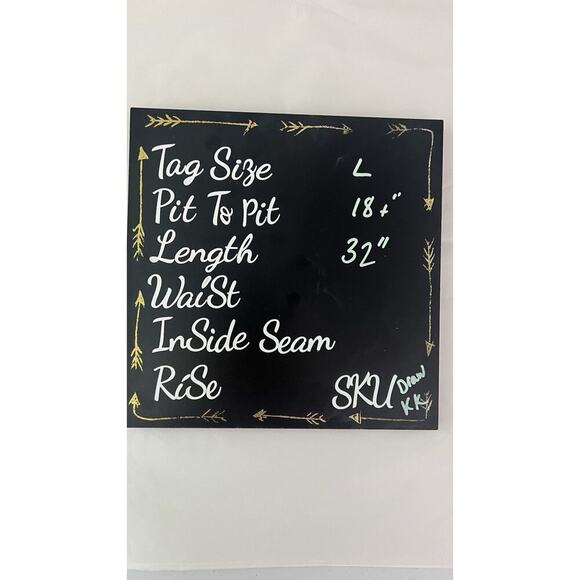 Tag Size L
Pit To Pit 18+"
Length 32"
WaiSt
InSide Seam
RiSe
SKU Draw
KK